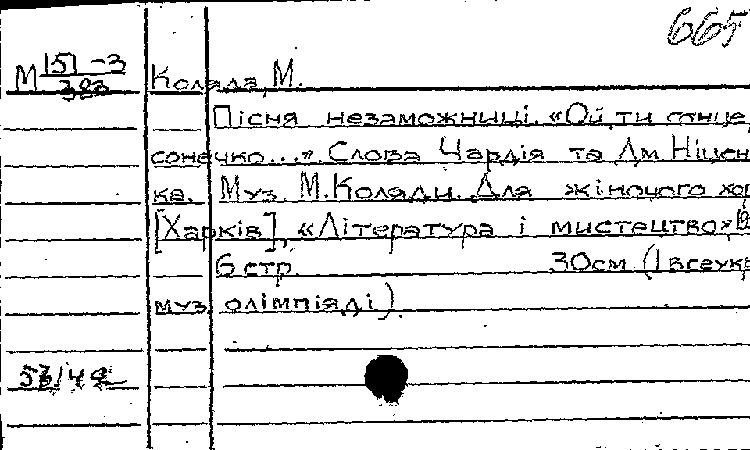 665
М 151-3
303
Коляда, М.
Пісня незаможниці. «Ой, ти сонце,
сонечко...» Слова Чардія та Дм. Ніцен
ка. Муз. М. Коляди. Для жіночого хор
[Харків], «Література і мистецтво» В
6 стр. 30см (I всеукр
муз. олімпіяді).